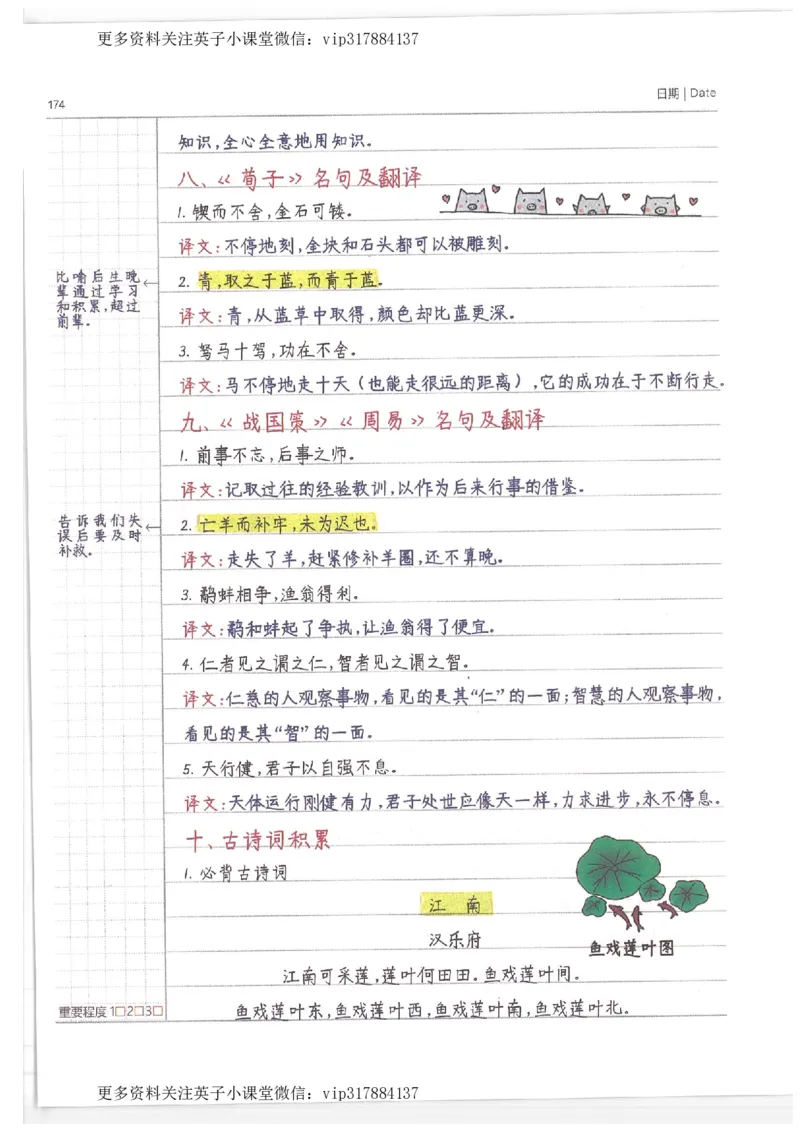 更多资料关注英子小课堂微信：vip317884137
174
日期 | Date
知识,全心全意地用知识。
八、《荀子》名句及翻译
1. 锲而不舍,金石可镂。
译文:不停地刻,金块和石头都可以被雕刻。
比喻后生晚
辈通过学习
和积累,超过
前辈。
2. 青,取之于蓝,而青于蓝。
译文:青,从蓝草中取得,颜色却比蓝更深。
3. 驽马十驾,功在不舍。
译文:马不停地走十天（也能走很远的距离）,它的成功在于不断行走。
九、《战国策》《周易》名句及翻译
1. 前事不忘,后事之师。
译文:记取过往的经验教训,以作为后来行事的借鉴。
告诉我们失
误后要及时
补救。
2. 亡羊而补牢,未为迟也。
译文:走失了羊,赶紧修补羊圈,还不算晚。
3. 鹬蚌相争,渔翁得利。
译文:鹬和蚌起了争执,让渔翁得了便宜。
4. 仁者见之谓之仁,智者见之谓之智。
译文:仁慈的人观察事物,看见的是其“仁”的一面;智慧的人观察事物,
看见的是其“智”的一面。
5. 天行健,君子以自强不息。
译文:天体运行刚健有力,君子处世应像天一样,力求进步,永不停息。
十、古诗词积累
1. 必背古诗词
江 南
汉乐府
鱼戏莲叶图
江南可采莲,莲叶何田田。鱼戏莲叶间。
鱼戏莲叶东,鱼戏莲叶西,鱼戏莲叶南,鱼戏莲叶北。
重要程度 1□2□3□
更多资料关注英子小课堂微信：vip317884137